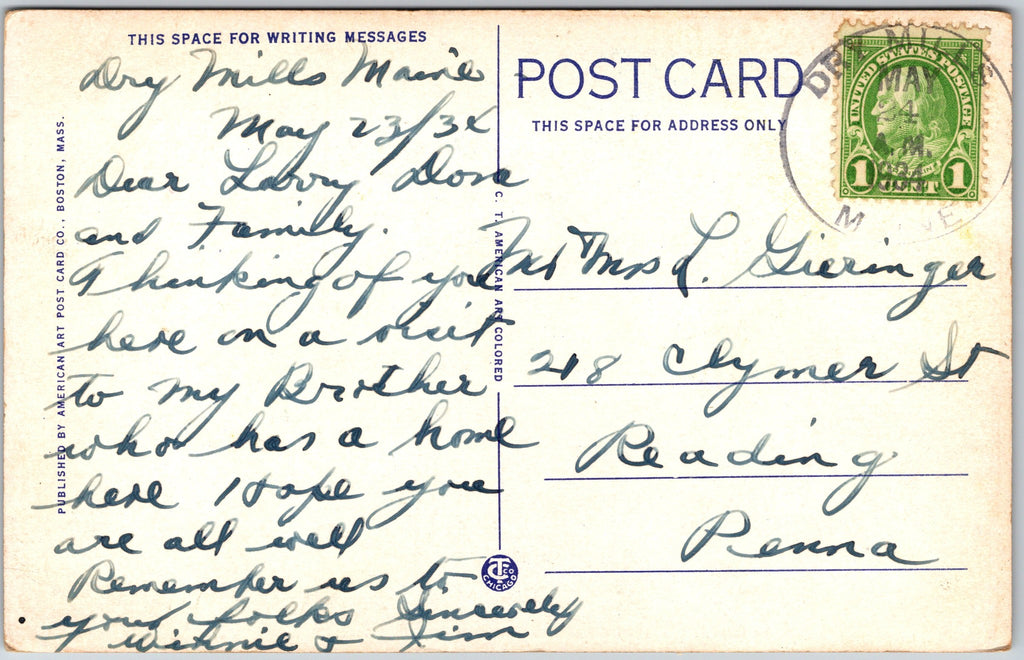 THIS SPACE FOR WRITING MESSAGES
Dry Mills Maine
May 23/34
Dear Larry Dora
and Family.
Thinking of you
here on a visit
to my Brother
who has a home
here Hope you
are all well
Remember us to
your folks Sincerely
Winnie & Jim
PUBLISHED BY AMERICAN ART POST CARD CO., BOSTON, MASS.
C. T. AMERICAN ART COLORED
CT CO
CHICAGO
POST CARD
THIS SPACE FOR ADDRESS ONLY
DRY MILLS
MAY
24
A.M.
1934
MAINE
UNITED STATES POSTAGE
1 CENT 1
Mr & Mrs L. Gieringer
218 Clymer St
Reading
Penna